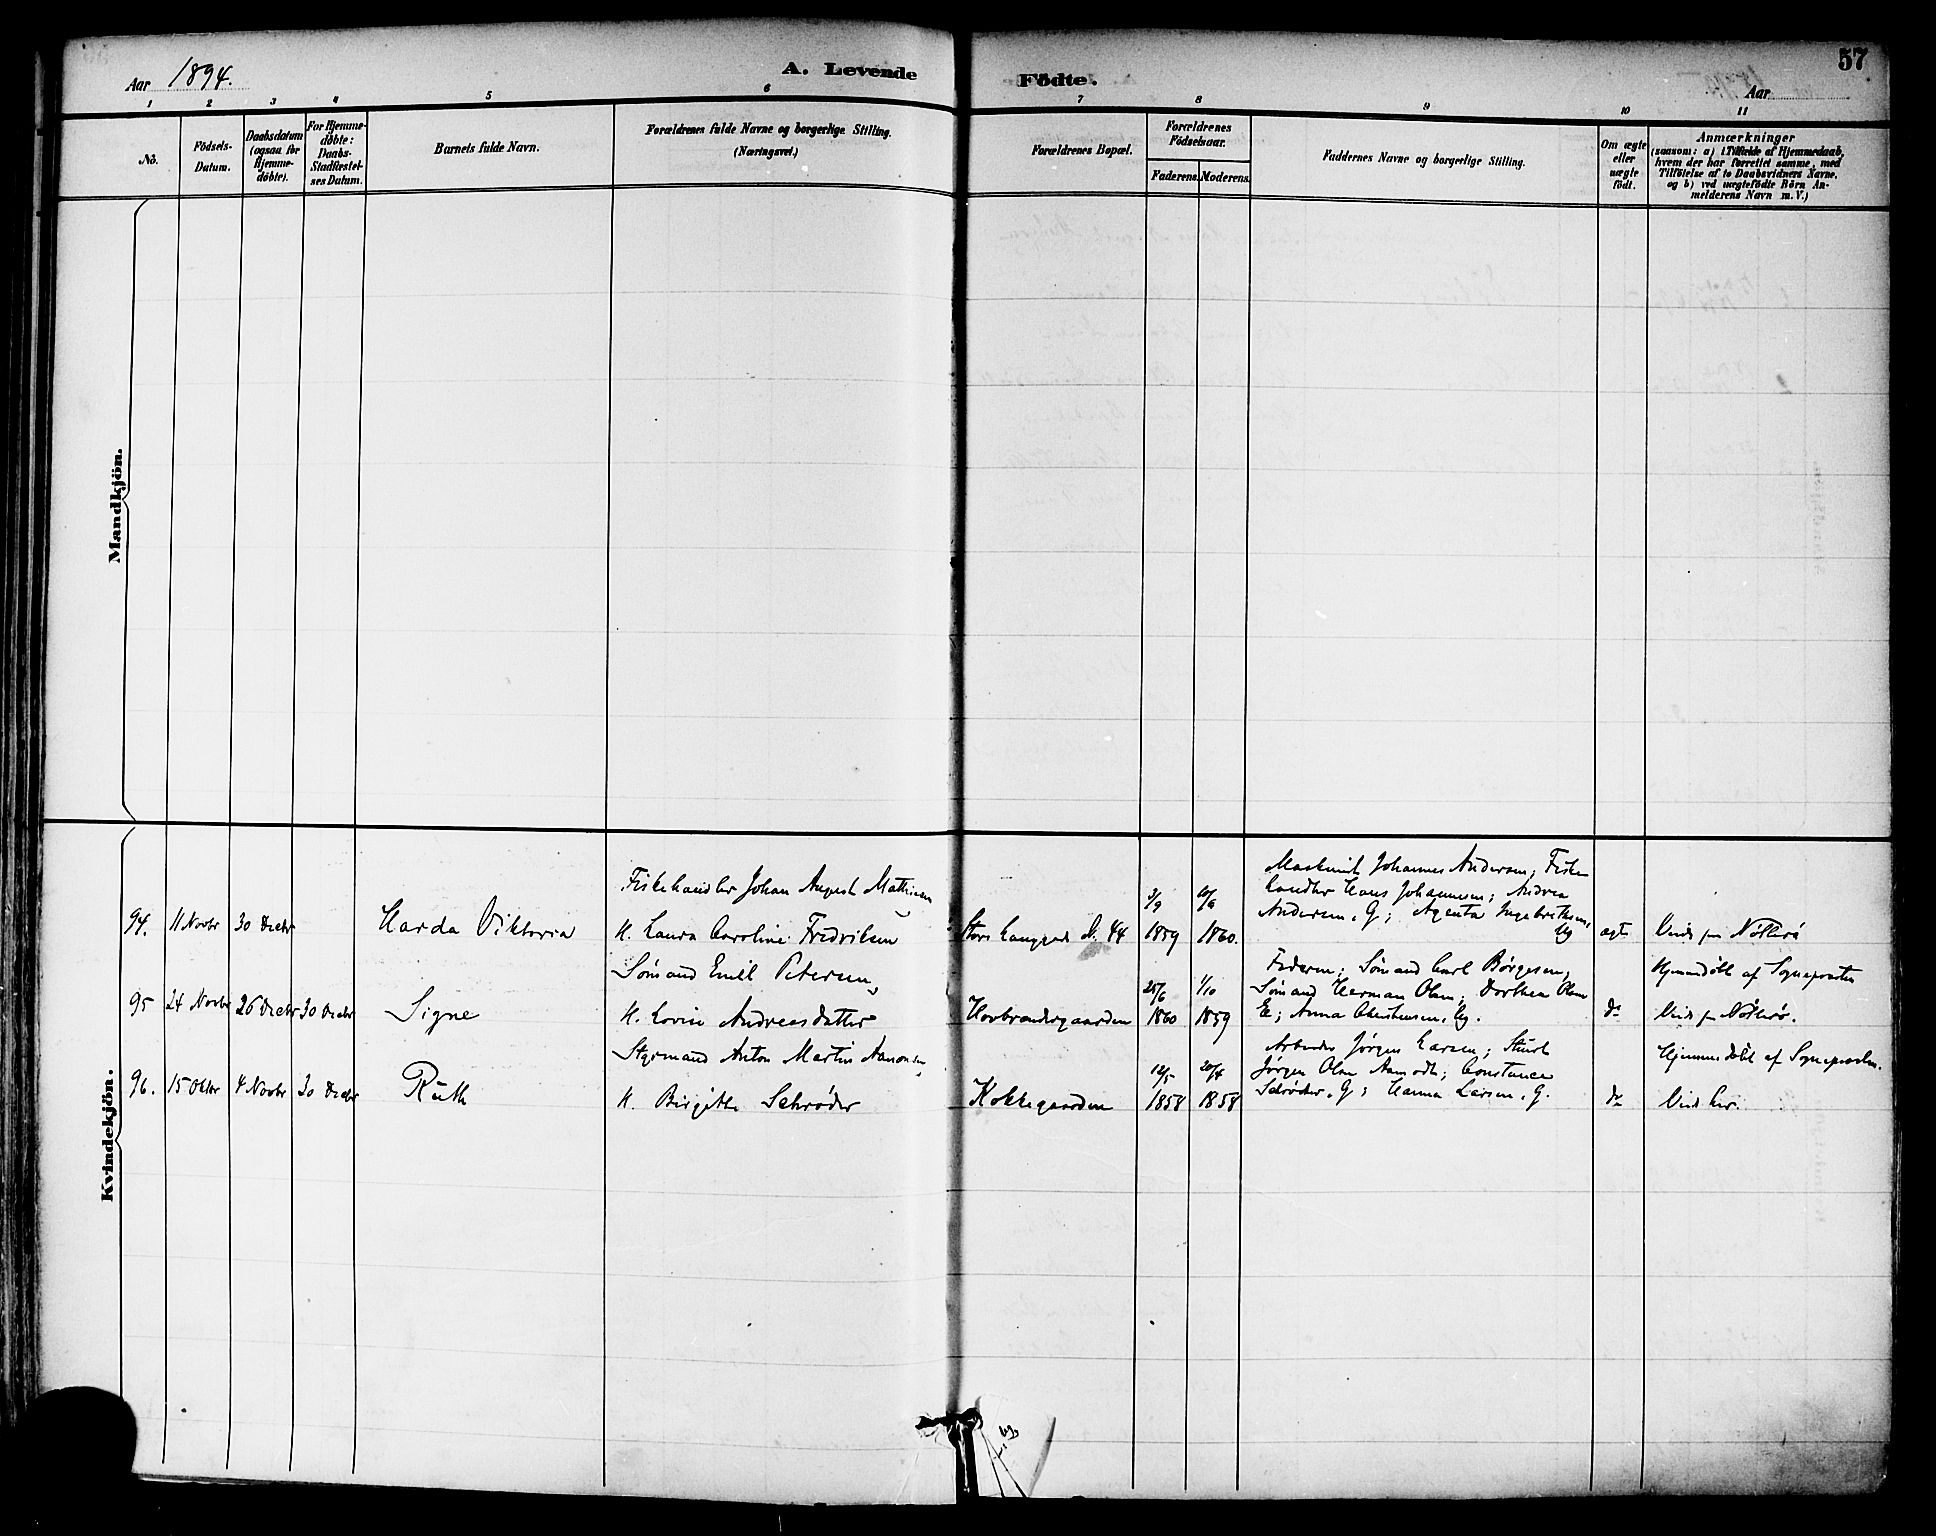 Aar 1894.
A. Levende Födte.
57
Aar
1 2 3 4 5 6 7 8 9 10 11
No.
Födsels-
Datum.
Daabsdatum
(ogsaa for
Hjemme-
döbte).
For Hjemme-
döbte:
Daabs-
Stadfæstel-
ses Datum.
Barnets fulde Navn.
Forældrenes fulde Navne og borgerlige Stilling.
(Næringsvei.)
Forældrenes Bopæl.
Forældrenes
Födselsaar.
Faderens. Moderens.
Faddernes Navne og borgerlige Stilling.
Om ægte
eller
uægte
födt.
Anmærkninger
(saasom: a) i Tilfælde af Hjemmedaab,
hvem der har forrettet samme, med
Tilföielse af to Daabsvidners Navne,
og b) ved uægtefödte Börn An-
melderens Navn m. V.)
Mandkjön.
Kvindekjön.
94. 11 Novbr 30 Decbr
Harda Viktoria
Fiskehandler Johan August Mathisen
H. Laura Caroline Fredriksen
Store Langgad N. 44
3/9 1859
10/6 1860.
Maskinist Johannes Andersen; Fiske
handler Hans Johannesen; Andrea
Andersen, G; Agenta Ingebrethsen,
Ug
ægte
Vied paa Nötterö
95 24 Novbr 26 Decbr 30 Decbr
Signe
Sömand Emil Petersen,
H. Lovise Andreasdatter
Hovbrandergaarden
25/6 1860
1/10 1859
Faderen; Sömand Carl Börgesen;
Sömand Herman Olsen; Dorthea Olsen
E; Anna Christensen, Ug.
do
Hjemmedöbt af Sognepresten
Vied paa Nötterö.
96. 15 Oktbr 4 Novbr 30 Decbr
Ruth
Styrmand Anton Martin Aanonsen,
H. Birgithe Schrøder
Kokkegaarden
12/5 1858
20/8 1858
Arbeider Jörgen Larsen;
Jörgen Olsen Aamodt; Constance
Schröder, G; Hanna Larsen, G.
do
Hjemmedöbt af Sognepresten.
Vied her.